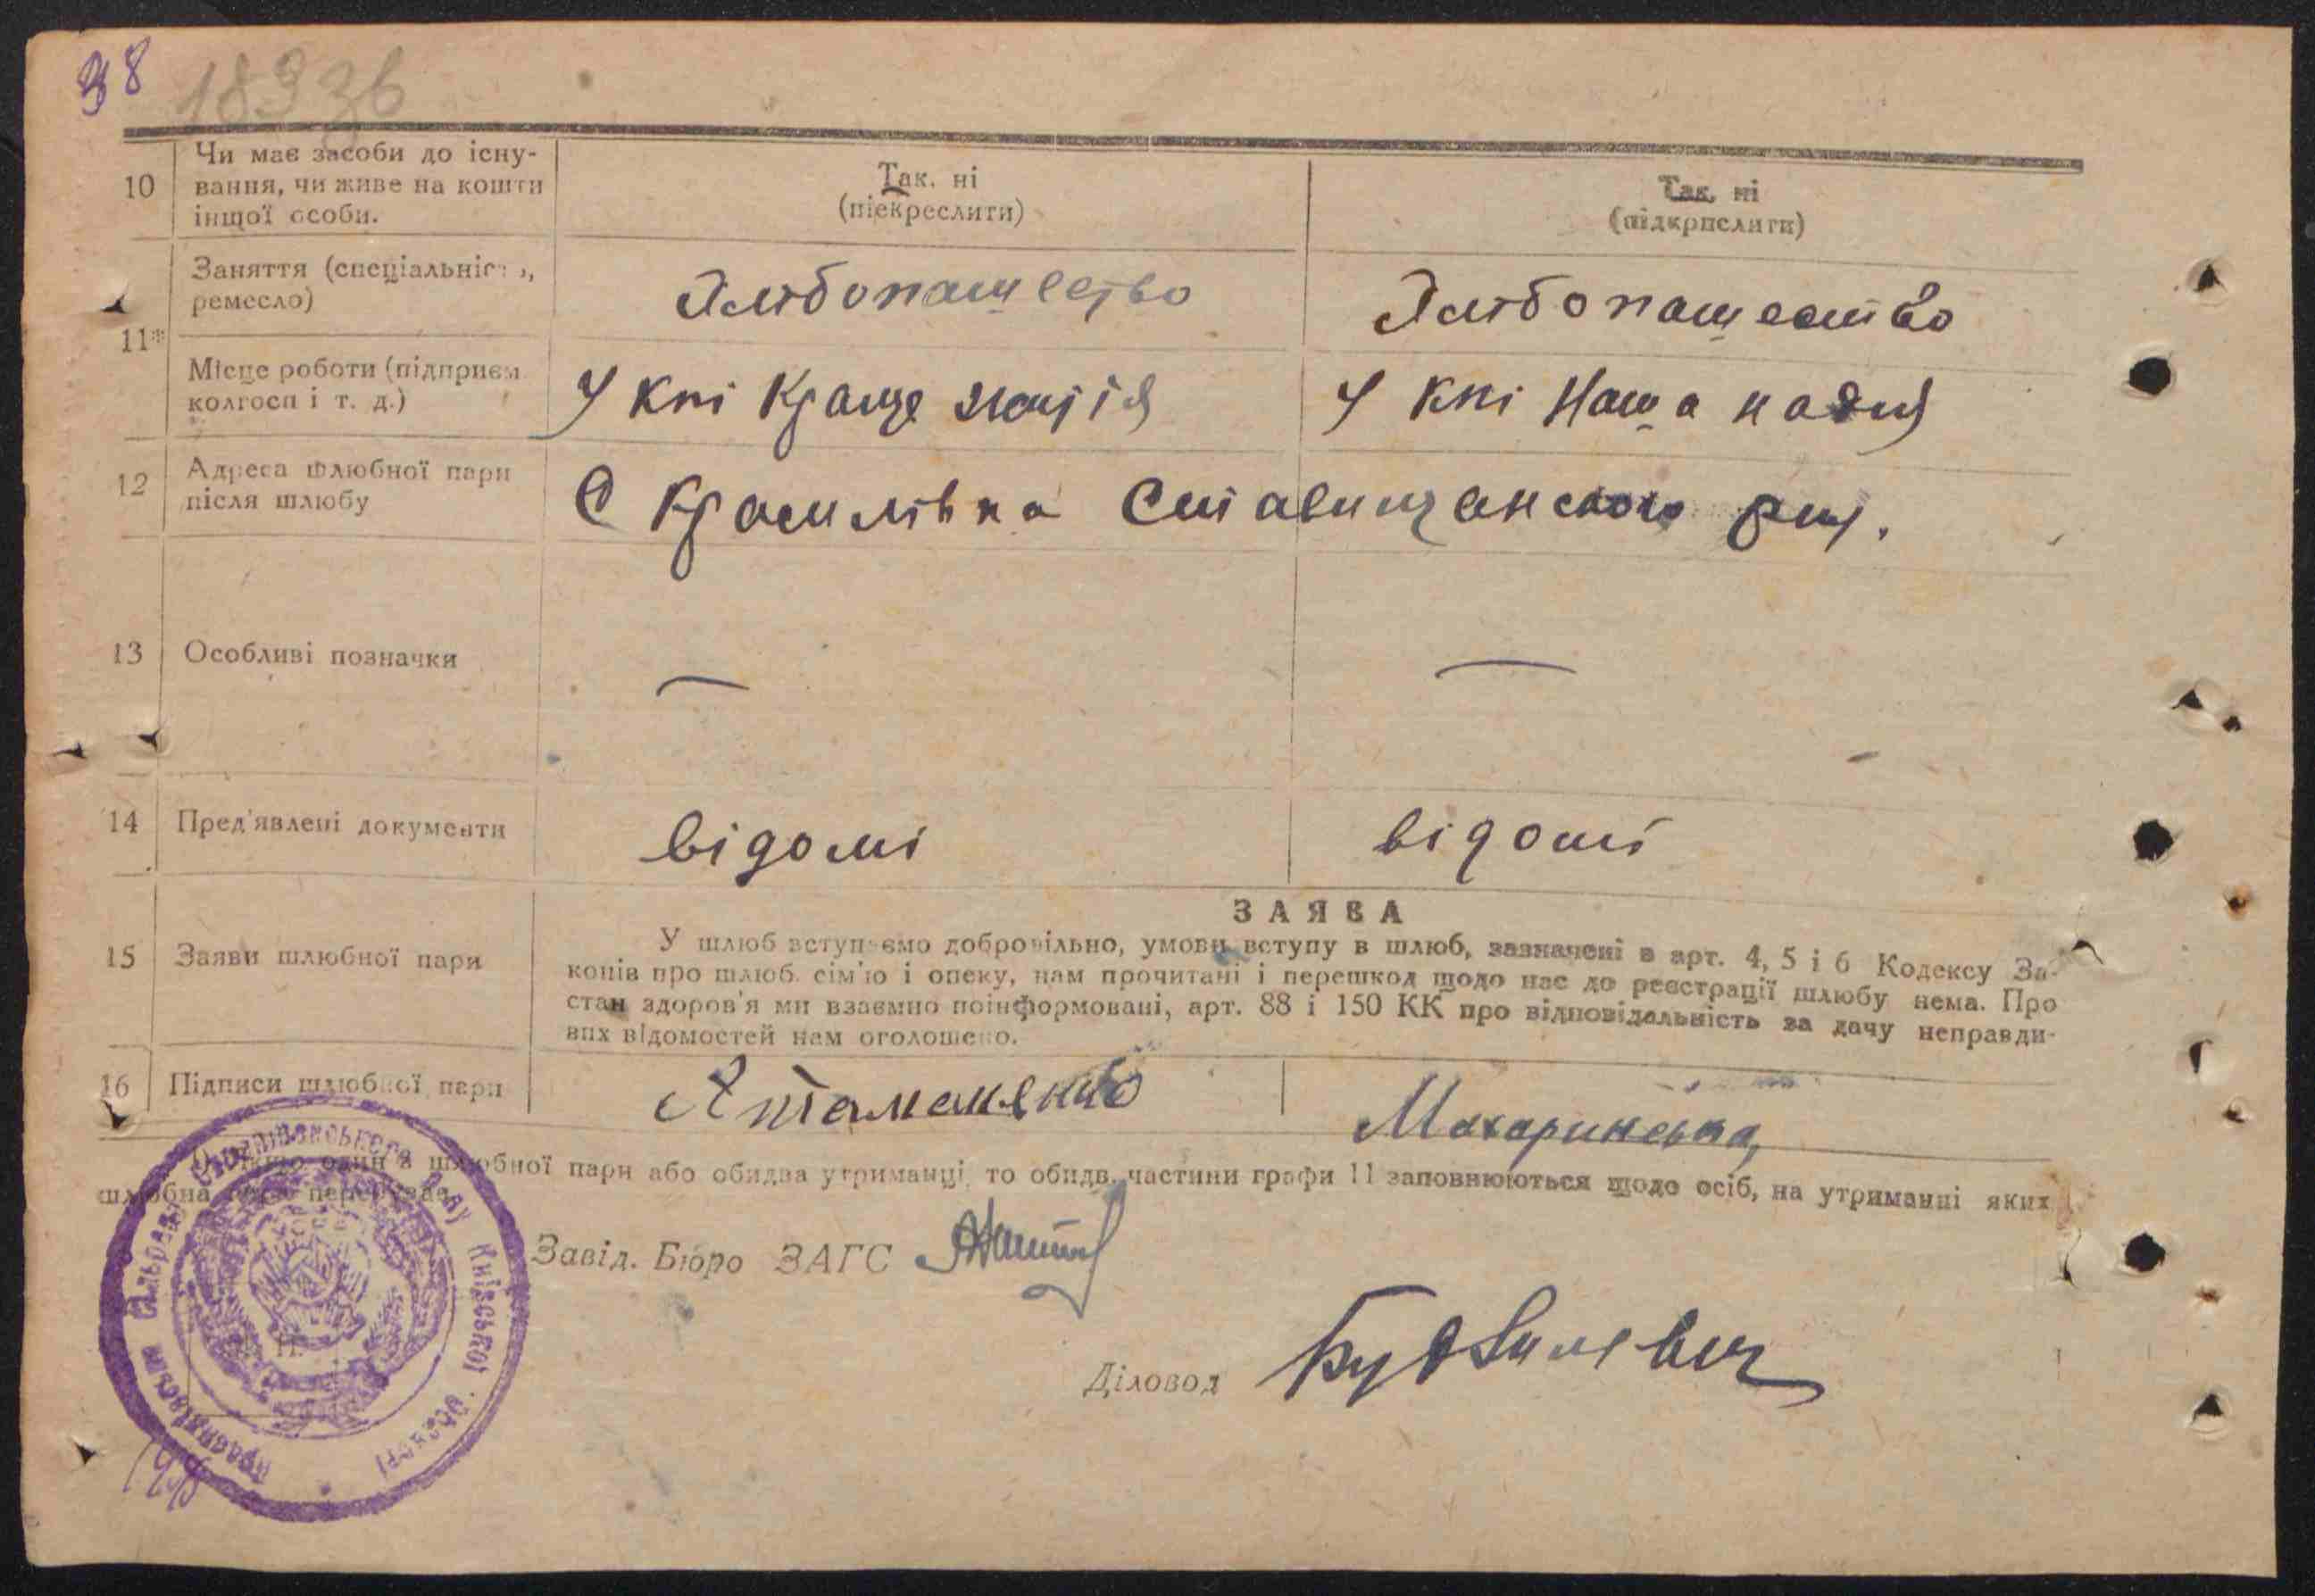 38 18936
10 Чи має засоби до існу-
вання, чи живе на кошти
іншої особи.
Так, ні
(піекреслити)
Так, ні
(підкрпслити)
11* Заняття (спеціальність,
ремесло)
Хлібопашество
Хлібопашество
Місце роботи (підприєм.
колгосп і т. д.)
У кпі Краще життя
У кпі Наша надія
12 Адреса шлюбної пари
після шлюбу
С Красилівка Ставищанского р-ну.
13 Особливі позначки
— —
14 Пред'явлені документи
відомі
відомі
15 Заяви шлюбної пари
ЗАЯВА
У шлюб вступаємо добровільно, умови вступу в шлюб, зазначені в арт. 4, 5 і 6 Кодексу За-
конів про шлюб. сім'ю і опеку, нам прочитані і перешкод щодо нас до реєстрації шлюбу нема. Про
стан здоров'я ми взаємно поінформовані, арт. 88 і 150 КК про відповідальність за дачу неправди-
вих відомостей нам оголошено.
16 Підписи шлюбної пари
Атаманенко
Махаринська
якщо один з шлюбної пари або обидва утриманці, то обидв. частини графи 11 заповнюються щодо осіб, на утриманні яких
шлюбна пара перебуває.
Завід. Бюро ЗАГС
Діловод
сільрада Ставищанського р-ну Київської області